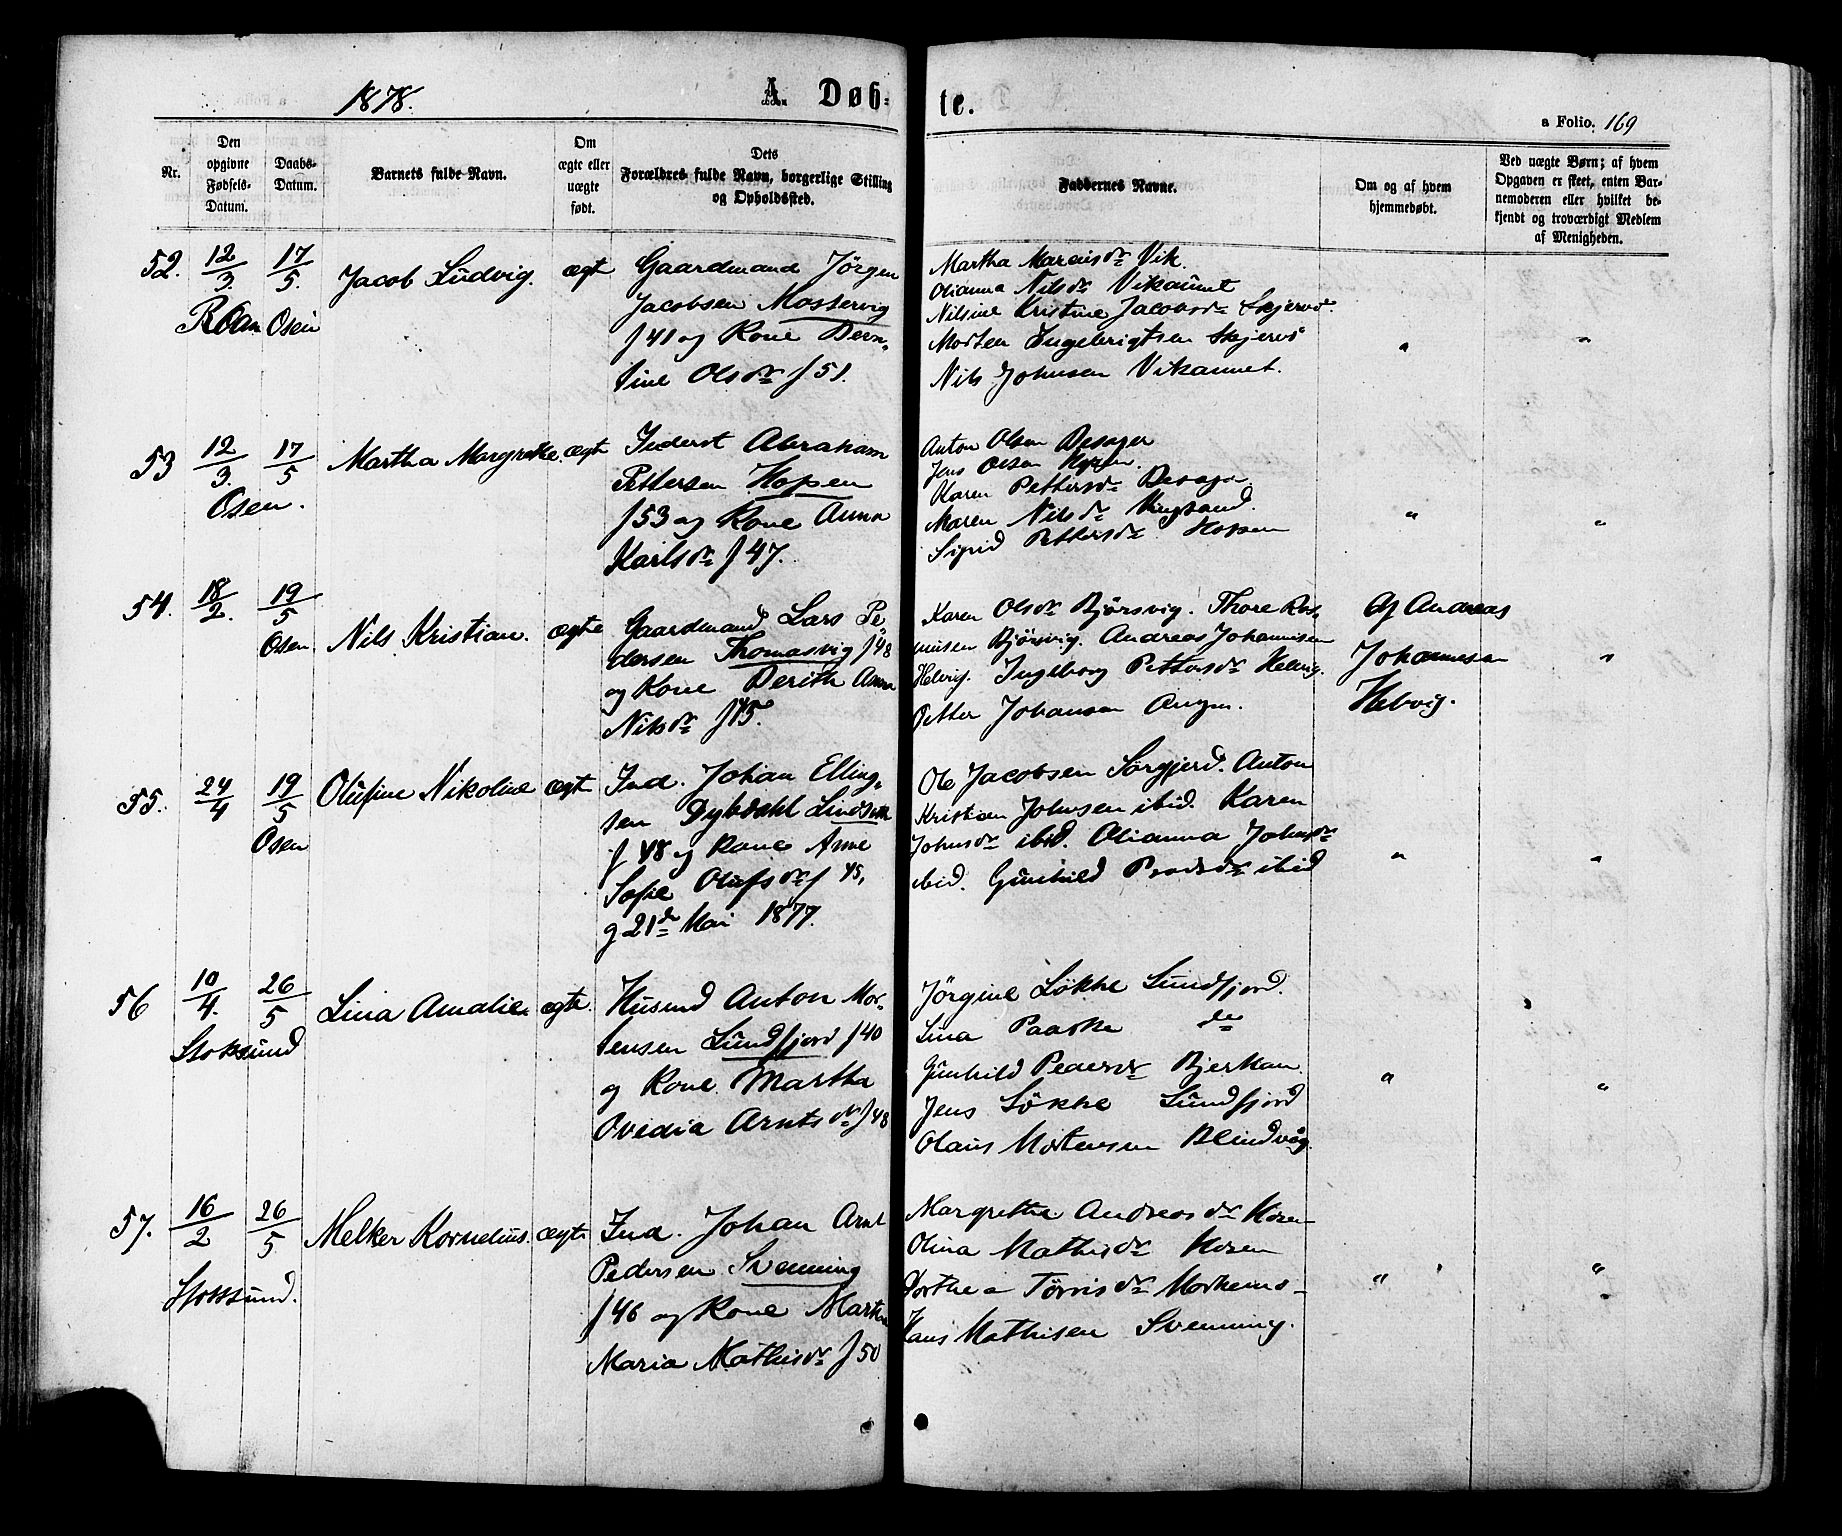 1878.
A Døb-
te.
a Folio. 169
Nr.
Den opgivne Fødsels-Datum.
Daabs-Datum.
Barnets fulde Navn.
Om ægte eller uægte født.
Dets Forældres fulde Navn, borgerlige Stilling og Opholdssted.
Faddernes Navne.
Om og af hvem hjemmedøbt.
Ved uægte Børn; af hvem Opgaven er skeet, enten Barnemoderen eller hvilket bekjendt og troværdigt Medlem af Menigheden.
52. 12/3. 17/5. Jacob Ludvig. ægt
Roan Osen
Gaardmand Jørgen
Jacobsen Mastervig
f 41 og Kone Bern-
tine Olsdr f 51.
Martha Marcusdr Vik.
Olianna Nilsdr Vikannet
Nilsine Kristine Jacobsdr Skjervø.
Morten Engebrigtsen Skjervø
Nils Johnsen Vikannet.
" "
53 12/3. 17/5 Martha Margrethe. ægt
Osen.
Inderst Abraham
Pettersen Hopen
f 53 og Kone Anna
Karlsdr f 47.
Anton Olsen Besager
Jens Olsen Hopen.
Karen Pettersdr Besager.
Maren Nilsdr Vingsand.
Sigrid Pettersdr Hopen
" "
54. 18/2. 19/5 Nils Kristian. ægte
Osen.
Gaardmand Lars Pe-
dersen Thomasvig f 48
og Kone Berith Anna
Nilsdr f 45.
Karen Olsdr Bjørsvig. Thore Ras-
musen Bjørsvig. Andreas Johannesen
Helvig. Ingeborg Pettersdr Helvig.
Petter Johansen Angen.
Af Andreas
Johannesen
Helvig.
"
55. 24/4 19/5 Olufine Nikoline ægt
Osen
Ind. Johan Elling-
sen Dybdahl Lindsem
f 48 og Kone Anne
Sofie Olufsdr f 45,
g 21de Mai 1877.
Ole Jacobsen Sørgjerd. Anton
Kristian Johnsen ibid. Karen
Johnsdr ibid. Olianna Johnsdr
ibid. Gunhild Paulsdr ibid
" "
56 10/4. 26/5 Lina Amalie. ægte.
Stoksund
Husmd Anton Mor-
tensen Sundfjord f 40
og Kone Martha
Ovedia Arntsdr f 48
Jørgine Løkke Sundfjord.
Lina Paaske do
Gunhild Pedersdr Bjerkan.
Jens Løkke Sundfjord
Olaus Mortensen Blindvåg.
" "
57. 16/2 26/5 Melker Kornelius. ægte
Stoksund.
Ind. Johan Arnt
Pedersen Svenning
f 46 og Kone Martha
Maria Mathisdr f 50
Margrethe Andreasdr Horen
Olina Mathisdr Horen
Dorthea Tørrisdr Morkemo-
Hans Mathisen Svenning.
" "